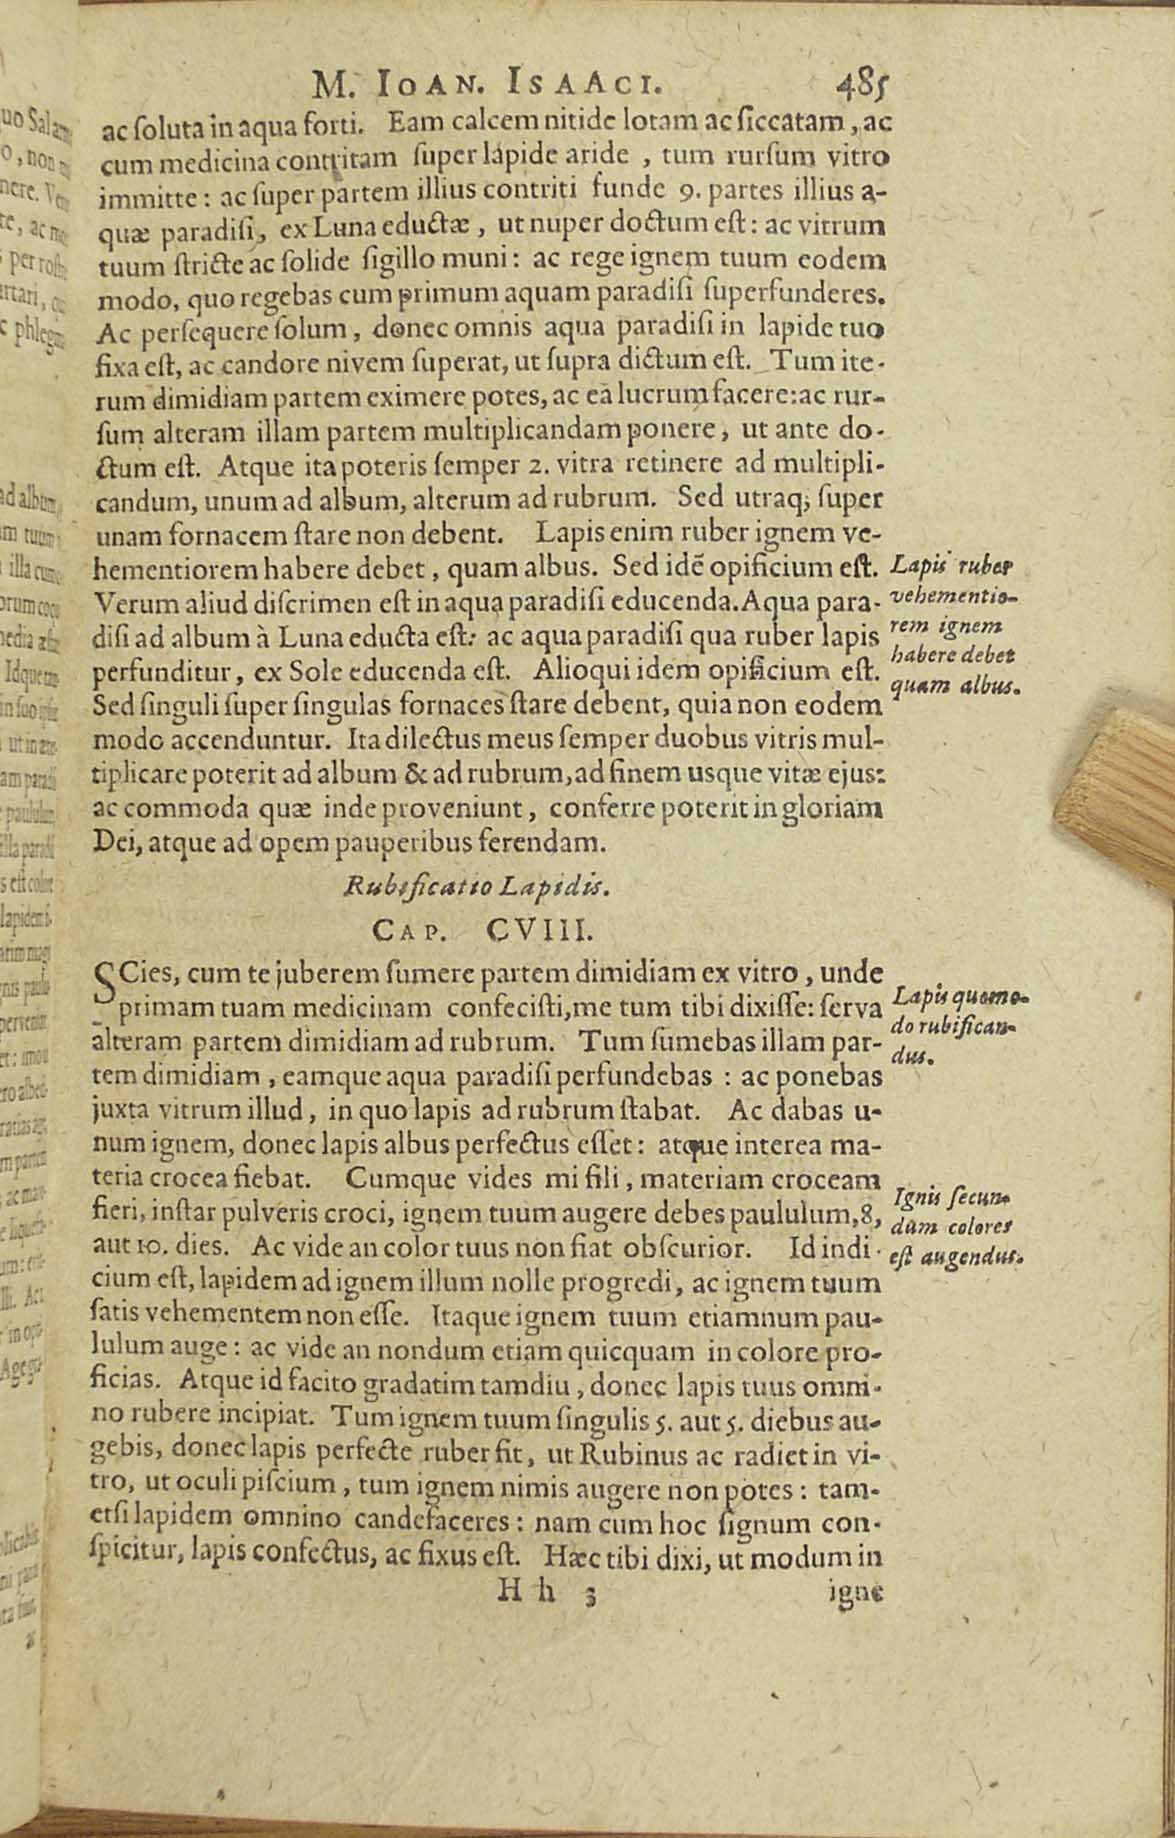 M. IOAN. ISAACI. 485
ac ſoluta in aqua forti. Eam calcem nitide lotam ac ſiccatam, ac
cum medicina contritam ſuper lapide aride, tum rurſum vitro
immitte: ac ſuper partem illius contriti funde 9. partes illius a-
quæ paradiſi, ex Luna eductæ, ut nuper doctum eſt: ac vitrum
tuum ſtricte ac ſolide ſigillo muni: ac rege ignem tuum eodem
modo, quo regebas cum primum aquam paradiſi ſuperfunderes.
Ac perſequere ſolum, donec omnis aqua paradiſi in lapide tuo
fixa eſt, ac candore nivem ſuperat, ut ſupra dictum eſt. Tum ite-
rum dimidiam partem eximere potes, ac eâ lucrum facere: ac rur-
ſum alteram illam partem multiplicandam ponere, ut ante do-
ctum eſt. Atque ita poteris ſemper 2. vitra retinere ad multipli-
candum, unum ad album, alterum ad rubrum. Sed utraq; ſuper
unam fornacem ſtare non debent. Lapis enim ruber ignem ve-
hementiorem habere debet, quam albus. Sed idē opificium eſt.
Verum aliud diſcrimen eſt in aqua paradiſi educenda. Aqua para-
diſi ad album à Luna educta eſt: ac aqua paradiſi qua ruber lapis
perfunditur, ex Sole educenda eſt. Alioqui idem opificium eſt.
Sed ſinguli ſuper ſingulas fornaces ſtare debent, quia non eodem
modo accenduntur. Ita dilectus meus ſemper duobus vitris mul-
tiplicare poterit ad album & ad rubrum, ad finem usque vitæ ejus:
ac commoda quæ inde proveniunt, conferre poterit in gloriam
Dei, atque ad opem pauperibus ferendam.
Lapis ruber
vehementio-
rem ignem
habere debet
quam albus.
Rubificatio Lapidis.
CAP. CVIII.
SCies, cum te juberem ſumere partem dimidiam ex vitro, unde
primam tuam medicinam confeciſti, me tum tibi dixiſſe: ſerva
alteram partem dimidiam ad rubrum. Tum ſumebas illam par-
tem dimidiam, eamque aqua paradiſi perfundebas: ac ponebas
juxta vitrum illud, in quo lapis ad rubrum ſtabat. Ac dabas u-
num ignem, donec lapis albus perfectus eſſet: atque interea ma-
teria crocea fiebat. Cumque vides mi fili, materiam croceam
fieri, inſtar pulveris croci, ignem tuum augere debes paululum, 8,
aut 10. dies. Ac vide an color tuus non fiat obſcurior. Id indi-
cium eſt, lapidem ad ignem illum nolle progredi, ac ignem tuum
ſatis vehementem non eſſe. Itaque ignem tuum etiamnum pau-
lulum auge: ac vide an nondum etiam quicquam in colore pro-
ficias. Atque id facito gradatim tamdiu, donec lapis tuus omni-
no rubere incipiat. Tum ignem tuum ſingulis 5. aut 5. diebus au-
gebis, donec lapis perfecte ruber fit, ut Rubinus ac radiet in vi-
tro, ut oculi piſcium, tum ignem nimis augere non potes: tam-
etſi lapidem omnino candefaceres: nam cum hoc ſignum con-
ſpicitur, lapis confectus, ac fixus eſt. Hæc tibi dixi, ut modum in
Lapis quomo-
do rubifican-
dus.
Ignis ſecun-
dum colores
eſt augendus.
Hh 3 igne